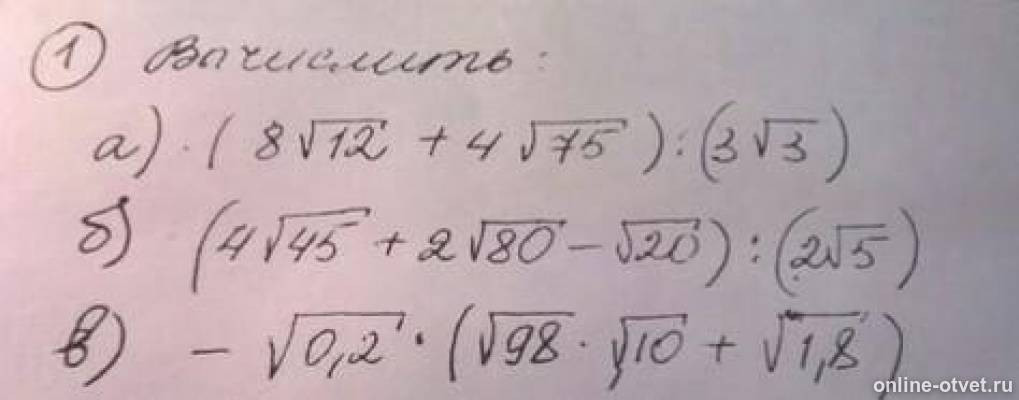 ① Вычислить:
а) · (8√12 + 4√75) : (3√3)
б) (4√45 + 2√80 - √20) : (2√5)
в) - √0,2 · (√98 · √10 + √1,8)
online-otvet.ru